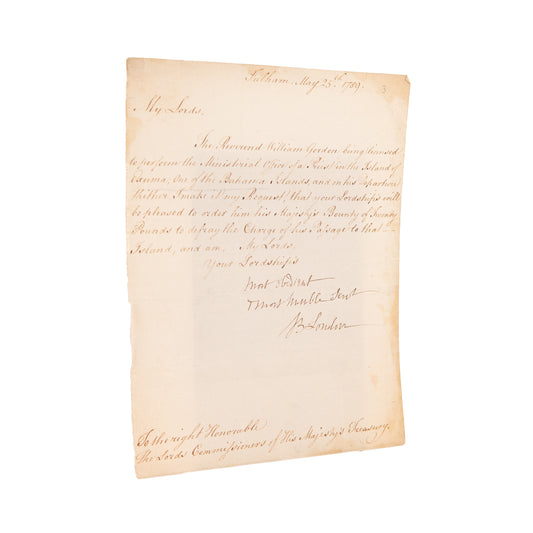 Fulham May 25th. 1789.
3
My Lords,
The Reverend William Gordon being licensed
to perform the Ministerial Office of a Priest in the Island of
Exuma, One of the Bahama Islands, and on his Departure
thither I make it my Request, that your Lordships will
be pleased to order him his Majesty's Bounty of Twenty
Pounds to defray the Charge of his Passage to that
Island, and am, My Lords
Your Lordships
most obedient
& most humble Servt
B. London
To the right Honorable
The Lords Commissioners of His Majesty's Treasury.